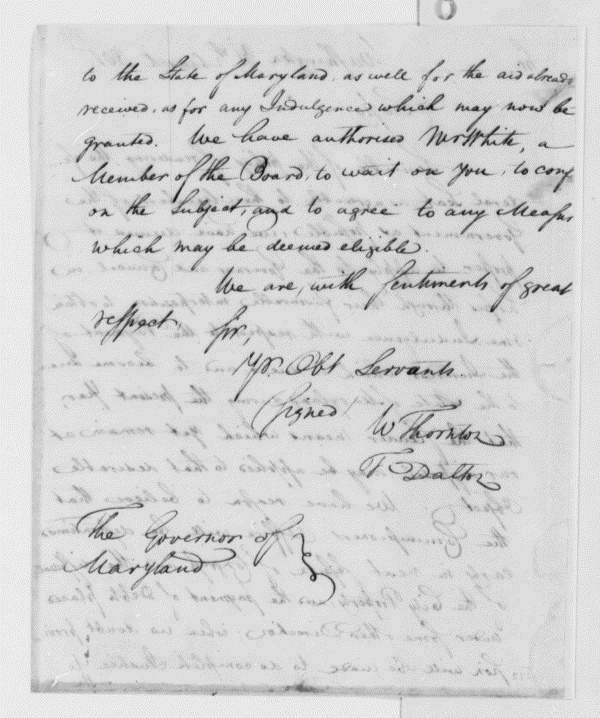 to the State of Maryland, as well for the aid already
received, as for any Indulgence which may now be
granted. We have authorised Mr White, a
Member of the Board, to wait on You, to conf
on the Subject, and to agree to any Measur
which may be deemed eligible.
We are, with Sentiments of great
respect, Sir,
Yr. Obt Servants
(signed) W Thornton
T Dalton
The Governor of
Maryland